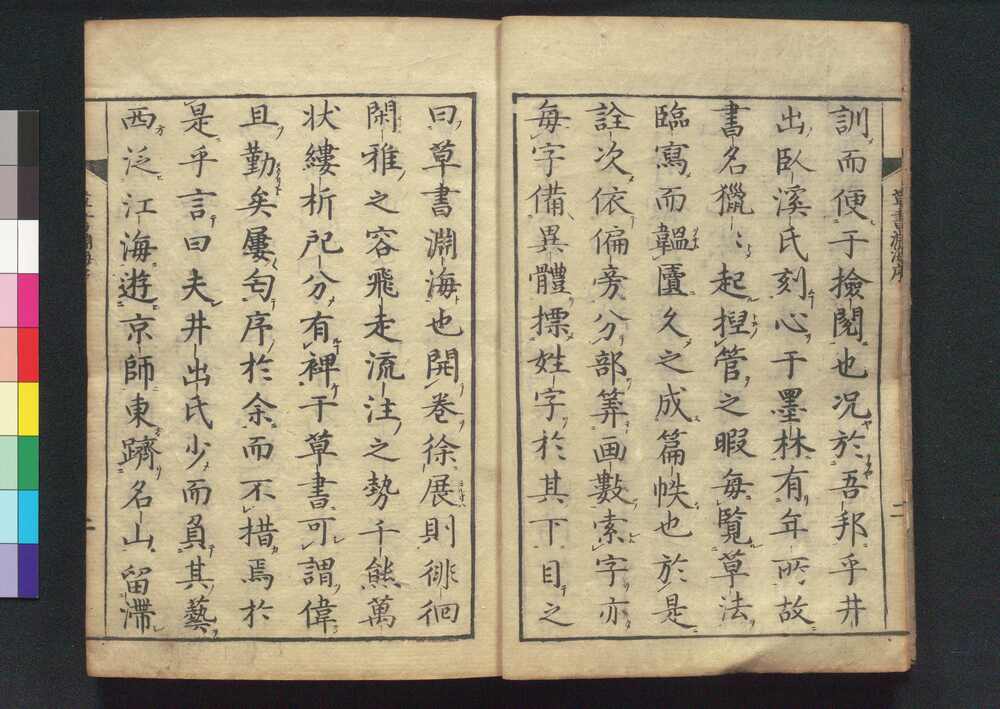 訓而便于撿閲也况於吾邦乎井
出臥溪氏刻心于墨林有年所故
書名獵〻起揑管之暇毎覽草法
臨寫而韞匵久之成篇帙也於是
詮次依偏旁分部筭画數索字亦
毎字備異體摽姓字於其下目之
曰草書淵海也開巻徐展則徘徊
閑雅之容飛走流注之勢千態萬
状縷析分有裨于草書可謂偉
且勤矣屢匄序於余而不措焉於
是乎言曰夫井出氏少而負其藝
西泛江海遊京師東躋名山留滯
草書淵海序
二
二